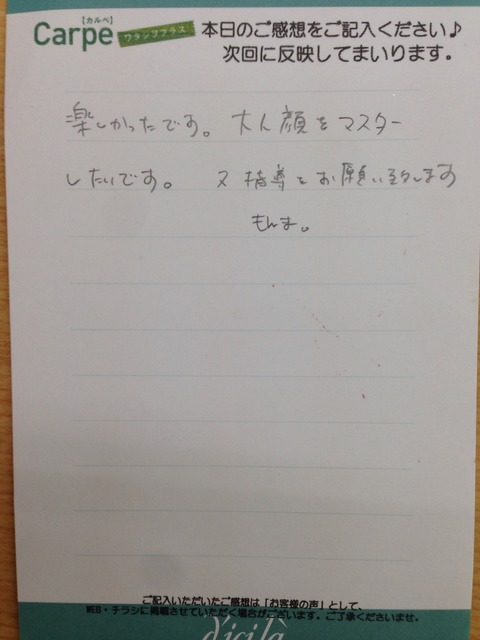 【カルペ】
Carpe ワランププラス 本日のご感想をご記入ください♪
次回に反映してまいります。
楽しかったです。大人顔をマスター
したいです。 又指導をお願い致します
もんま。
ご記入いただいたご感想は「お客様の声」として、
WEB・チラシに掲載させていただく場合がございます。ご了承くださいませ。
dicila